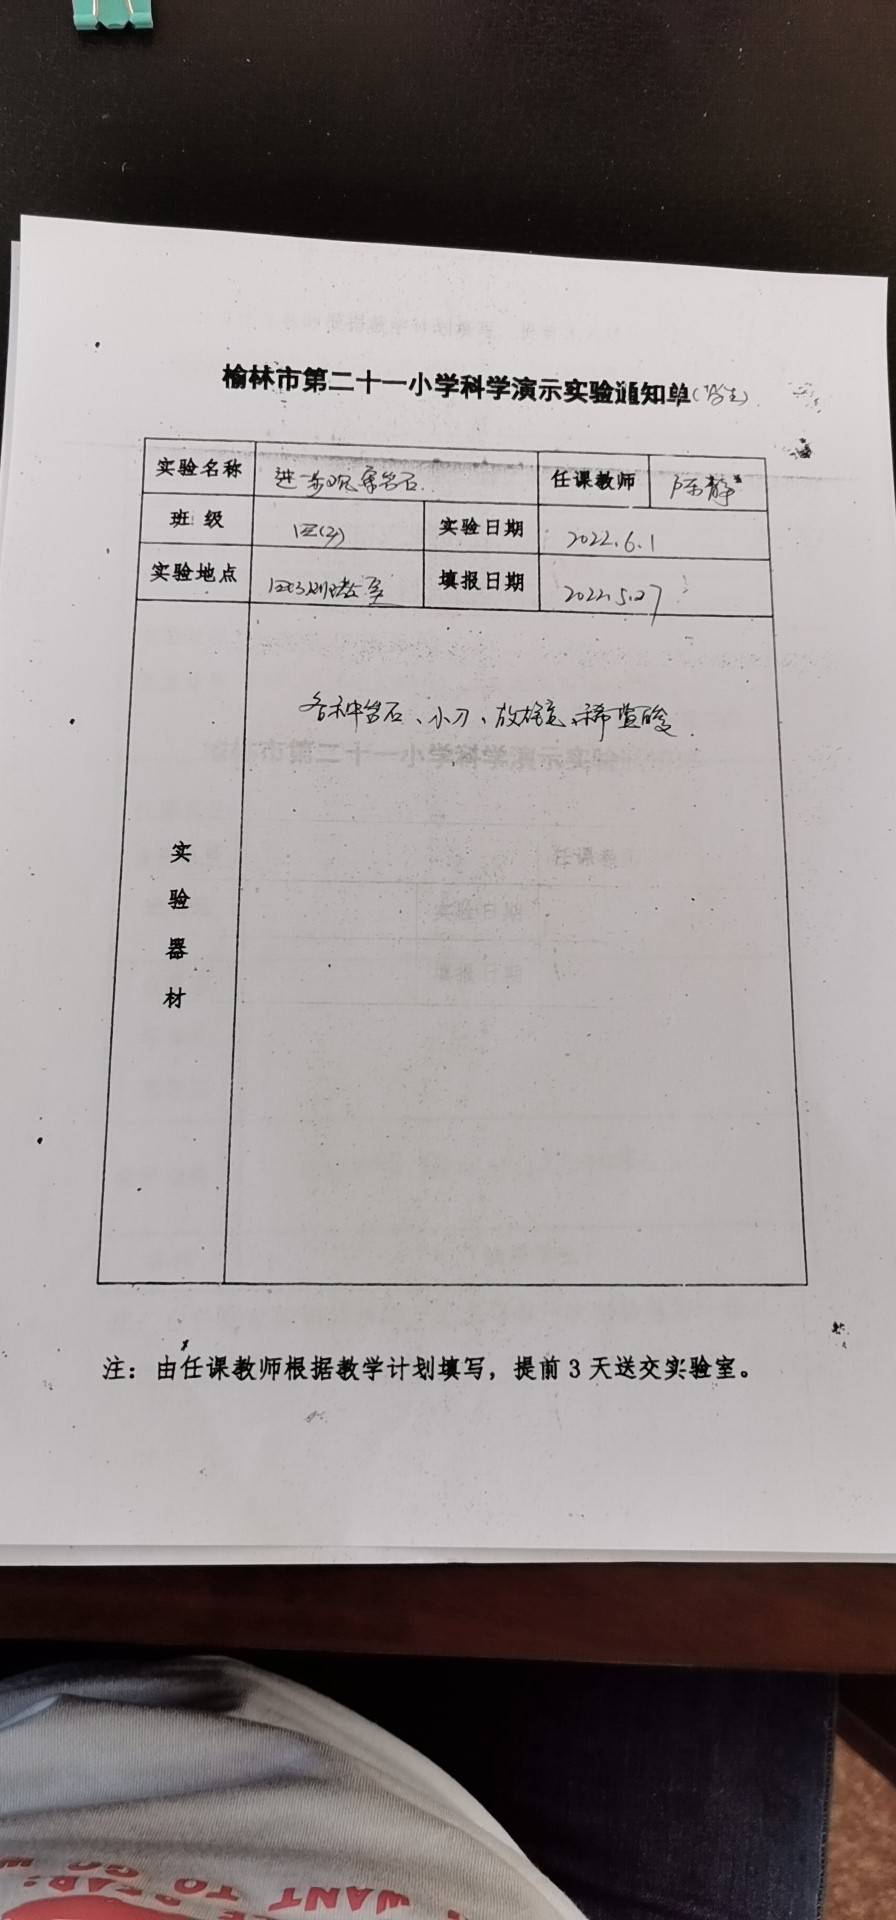 榆林市第二十一小学科学演示实验通知单(学生)
实验名称 进一步观察岩石 任课教师 陈静
班级 四(3) 实验日期 2022.6.1
实验地点 四3班教室 填报日期 2022.5.27
各种岩石、小刀、放大镜、稀盐酸
实
验
器
材
注：由任课教师根据教学计划填写，提前3天送交实验室。
WANT TO
GO W